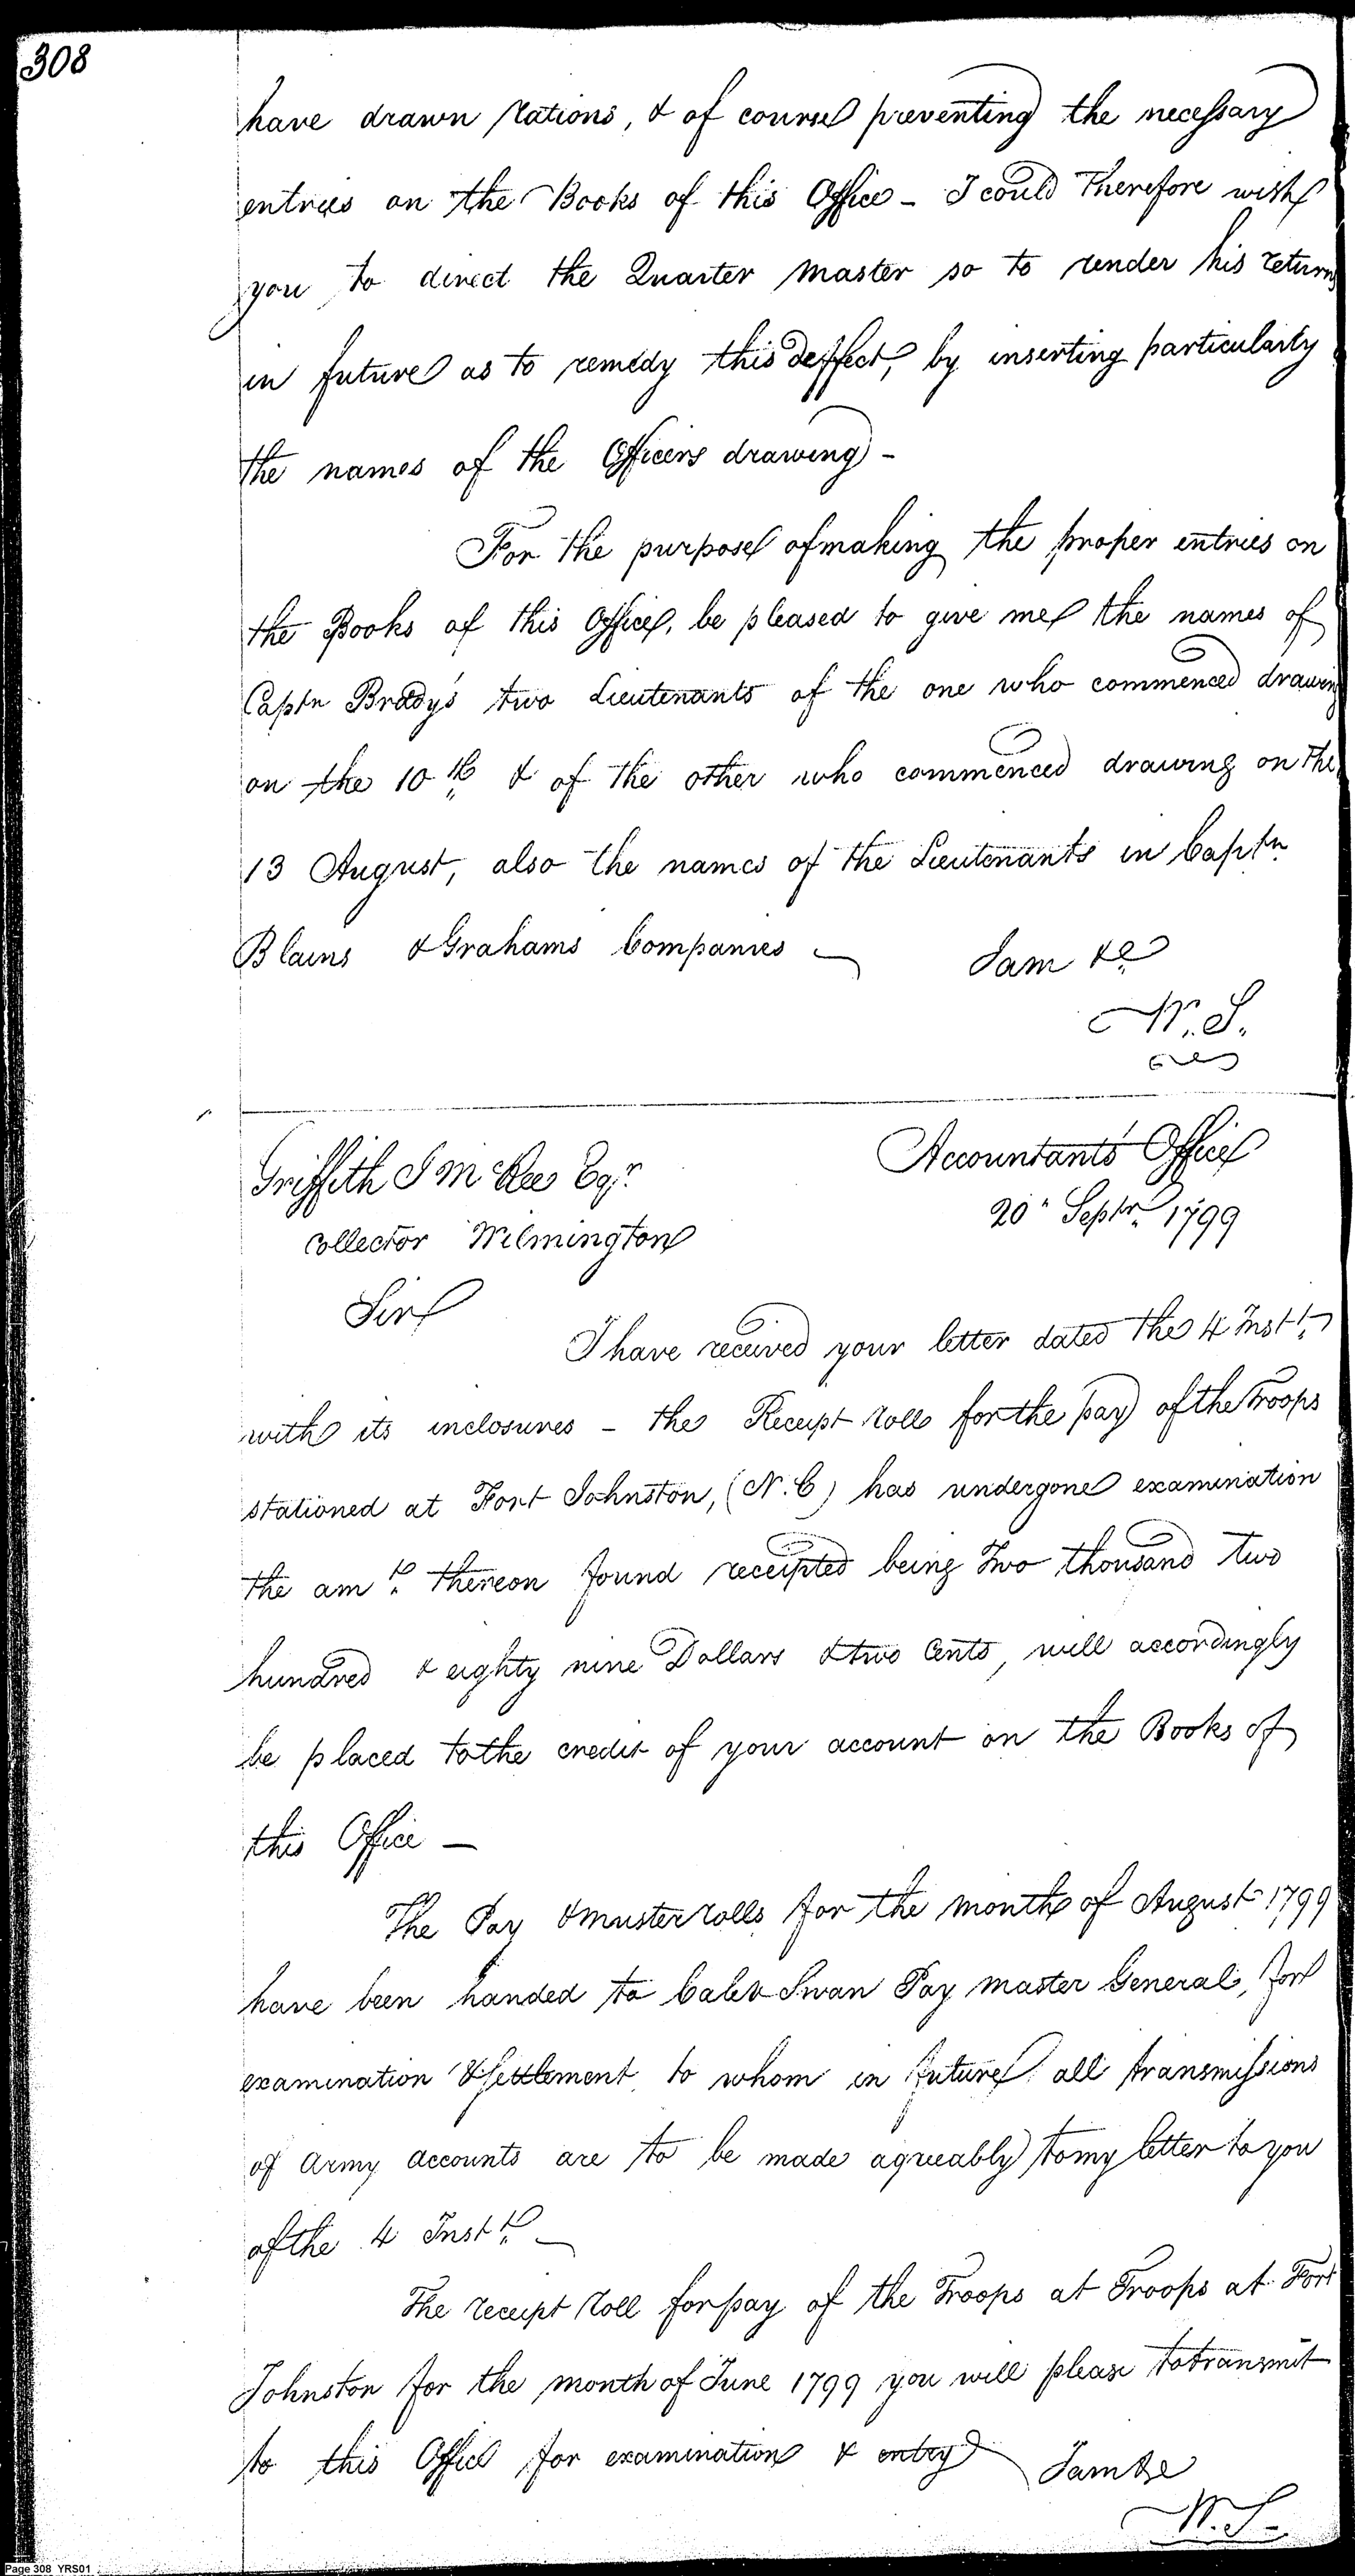 308
have drawn rations, & of course preventing the necessary
entries on the Books of this Office - I could therefore wish
you to direct the Quarter Master so to render his returns
in future as to remedy this deffect, by inserting particularly
the names of the Officers drawing -
For the purpose of making the proper entries on
the Books of this Office, be pleased to give me the names of
Captn Bradys two Lieutenants of the one who commenced drawing
on the 10th & of the other who commenced drawing on the
13 August, also the names of the Lieutenants in Captn
Blains & Grahams Companies -
I am &c
W. S.
Accountants Office
20 Septr 1799
Griffith J McRee Esqr
Collector Wilmington
Sir
I have received your letter dated the 4 Instt
with its inclosures - the Receipt roll for the pay of the Troops
stationed at Fort Johnston, (N. C) has undergone examination
the amt thereon found receipted being Two thousand two
hundred & eighty nine Dollars & two Cents, will accordingly
be placed to the credit of your account on the Books of
this Office -
The Pay & muster rolls for the month of August 1799
have been handed to Caleb Swan Pay Master General, for
examination & settlement to whom in future all transmissions
of Army accounts are to be made agreeably to my letter to you
of the 4 Instt -
The receipt roll for pay of the Troops at Troops at Fort
Johnston for the month of June 1799 you will please to transmit
to this Office for examination & entry
I am &c
W. S.
Page 308 YRS01